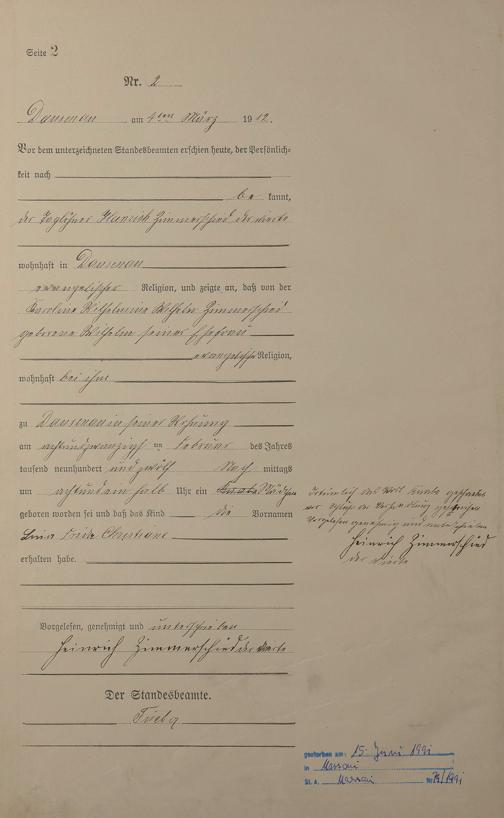 Seite 2
Nr. 2
Dausenau am 4ten März 1912.
Vor dem unterzeichneten Standesbeamten erschien heute, der Persönlich-
keit nach
be kannt,
der Taglöhner Heinrich Zimmerschied der vierte
wohnhaft in Dausenau
evangelischer Religion, und zeigte an, daß von der
Karoline Wilhelmine Zimmerschied
geborene Wilhelm seiner Ehefrau
evangelischer Religion,
wohnhaft bei ihm
zu Dausenau in seiner Wohnung
am achtundzwanzigsten Februar des Jahres
tausend neunhundert und zwölf Nach mittags
um acht und ein halb Uhr ein Knabe Mädchen
geboren worden sei und daß das Kind die Vornamen
Frieda Christiane
erhalten habe.
das Wort Knabe
Vorgelesen genehmigt und unterschrieben
Heinrich Zimmerschied
der vierte
Vorgelesen, genehmigt und unterschrieben
Heinrich Zimmerschied der vierte
Der Standesbeamte.
gestorben am: 15. Juni 1991
in Nassau
St. A. Nassau Nr. /1991